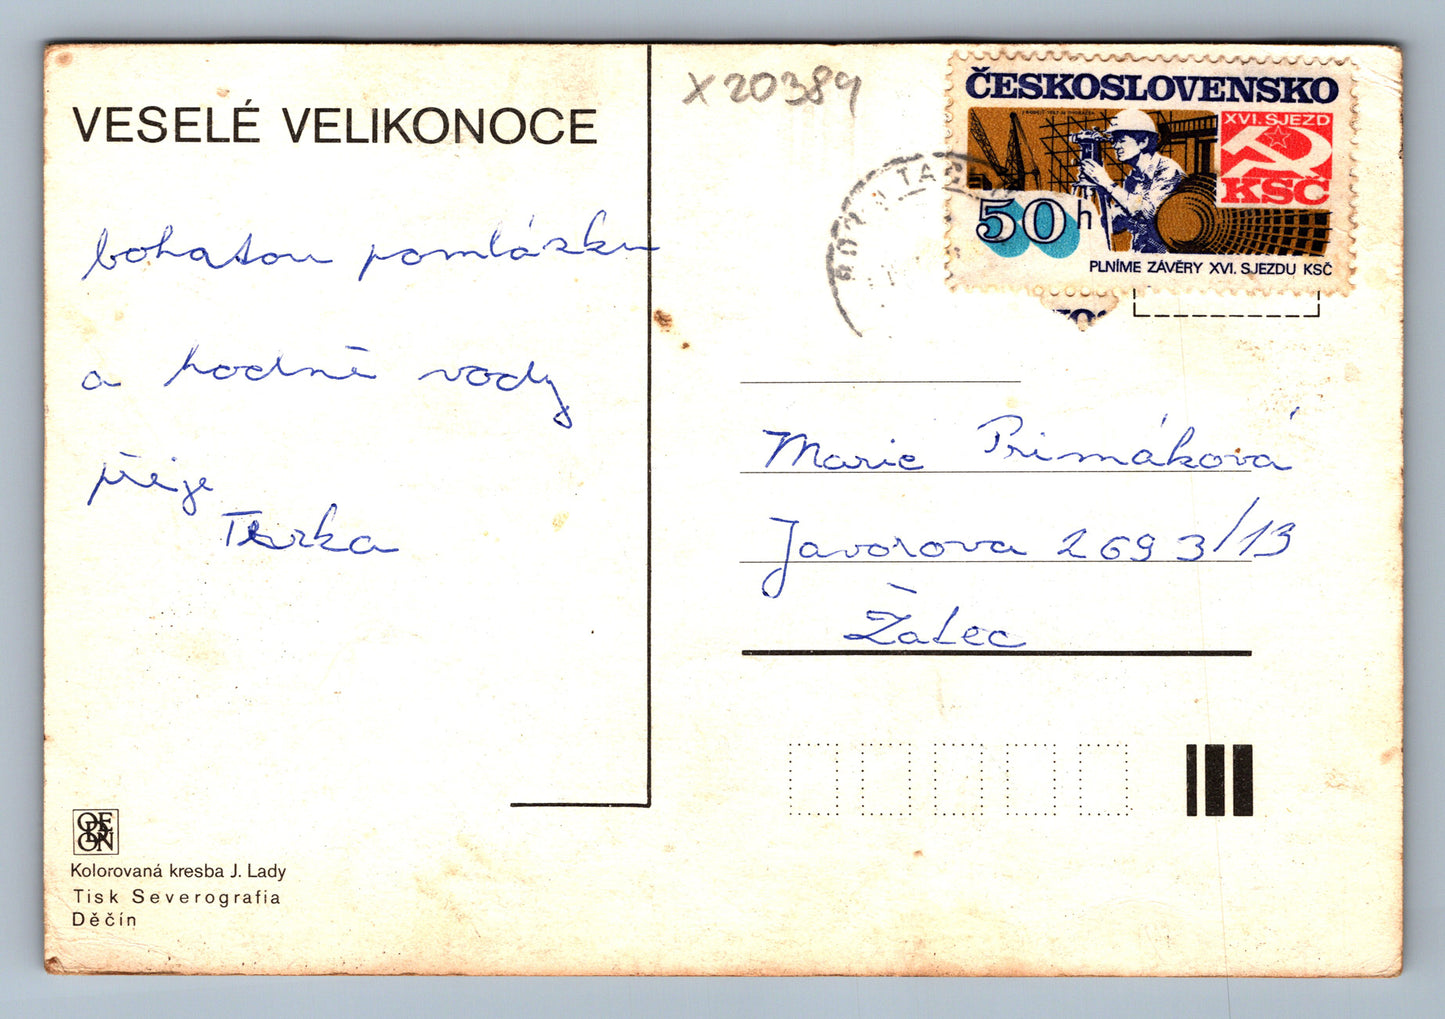 VESELÉ VELIKONOCE
bohatou pomlázku
a hodně vody
přeje
Terka
ODEON
Kolorovaná kresba J. Lady
Tisk Severografia
Děčín
X 20384
ČESKOSLOVENSKO
XVI. SJEZD
KSČ
50h
PLNÍME ZÁVĚRY XVI. SJEZDU KSČ
Marie Primáková
Javorova 2693/13
Žatec